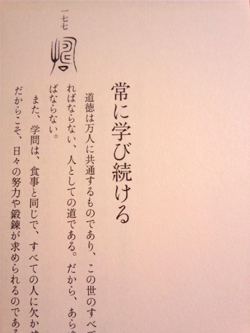 常に学び続ける
道徳は万人に共通するものであり、この世のすべ
ればならない、人としての道である。だから、あらま
ばならない。
また、学問は、食事と同じで、すべての人に欠かせ
だからこそ、日々の努力や鍛錬が求められるのである
一七七